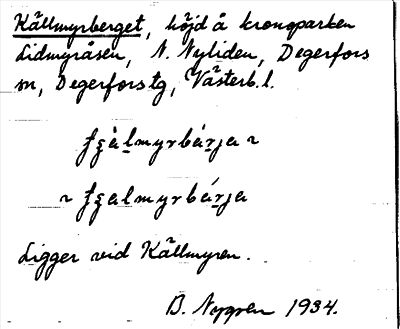 Källmyrberget, höjd å kronoparken
Lidmyråsen, N. Nyliden, Degerfors
sn, Degerfors tg, Västerb. l.
Ligger vid Källmyren.
B. Nygren 1934.